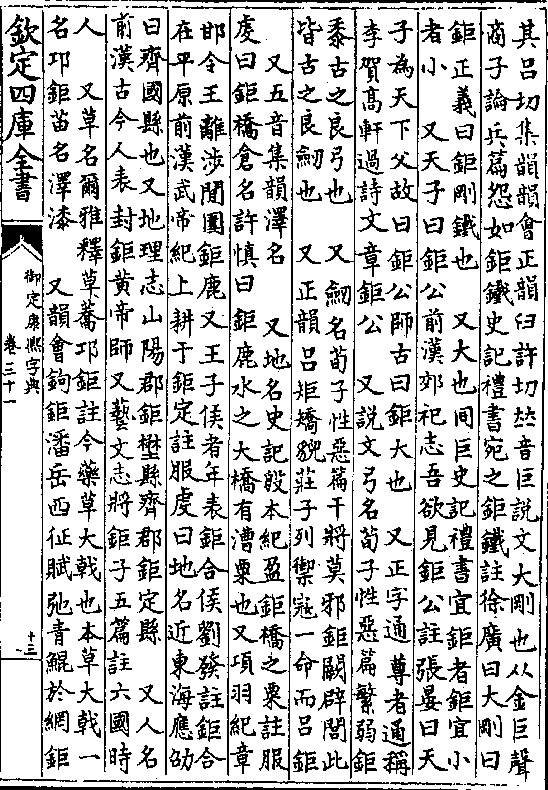 其呂切集韻韻會正韻臼許切𠀤音巨說文大剛也从金巨聲
商子論兵篇怨如鉅鐵史記禮書宛之鉅鐵註徐廣曰大剛曰
鉅正義曰鉅剛鐵也　又大也同巨史記禮書宜鉅者鉅宜小
者小　又天子曰鉅公前漢郊祀志吾欲見鉅公註張晏曰天
子為天下父故曰鉅公師古曰鉅大也　又正字通尊者通稱
李賀高軒過詩文章鉅公　又說文弓名荀子性惡篇繁弱鉅
黍古之良弓也　又劒名荀子性惡篇干將莫邪鉅闕辟閭此
皆古之良劒也　又正韻呂矩矯貌莊子列禦寇一命而呂鉅
又五音集韻澤名　又地名史記殷本紀盈鉅橋之粟註服
虔曰鉅橋倉名許慎曰鉅鹿水之大橋有漕粟也又項羽紀章
邯令王離涉閒圍鉅鹿又王子侯者年表鉅合侯劉發註鉅合
在平原前漢武帝紀上耕于鉅定註服虔曰地名近東海應劭
曰齊國縣也又地理志山陽郡鉅壄縣齊郡鉅定縣　又人名
前漢古今人表封鉅黃帝師又藝文志將鉅子五篇註六國時
人　又草名爾雅釋草蕎邛鉅註今藥草大戟也本草大戟一
名邛鉅苗名澤漆　又韻會鉤鉅潘岳西征賦弛青鯤於網鉅
欽定四庫全書
御定康熙字典
卷三十一
十三